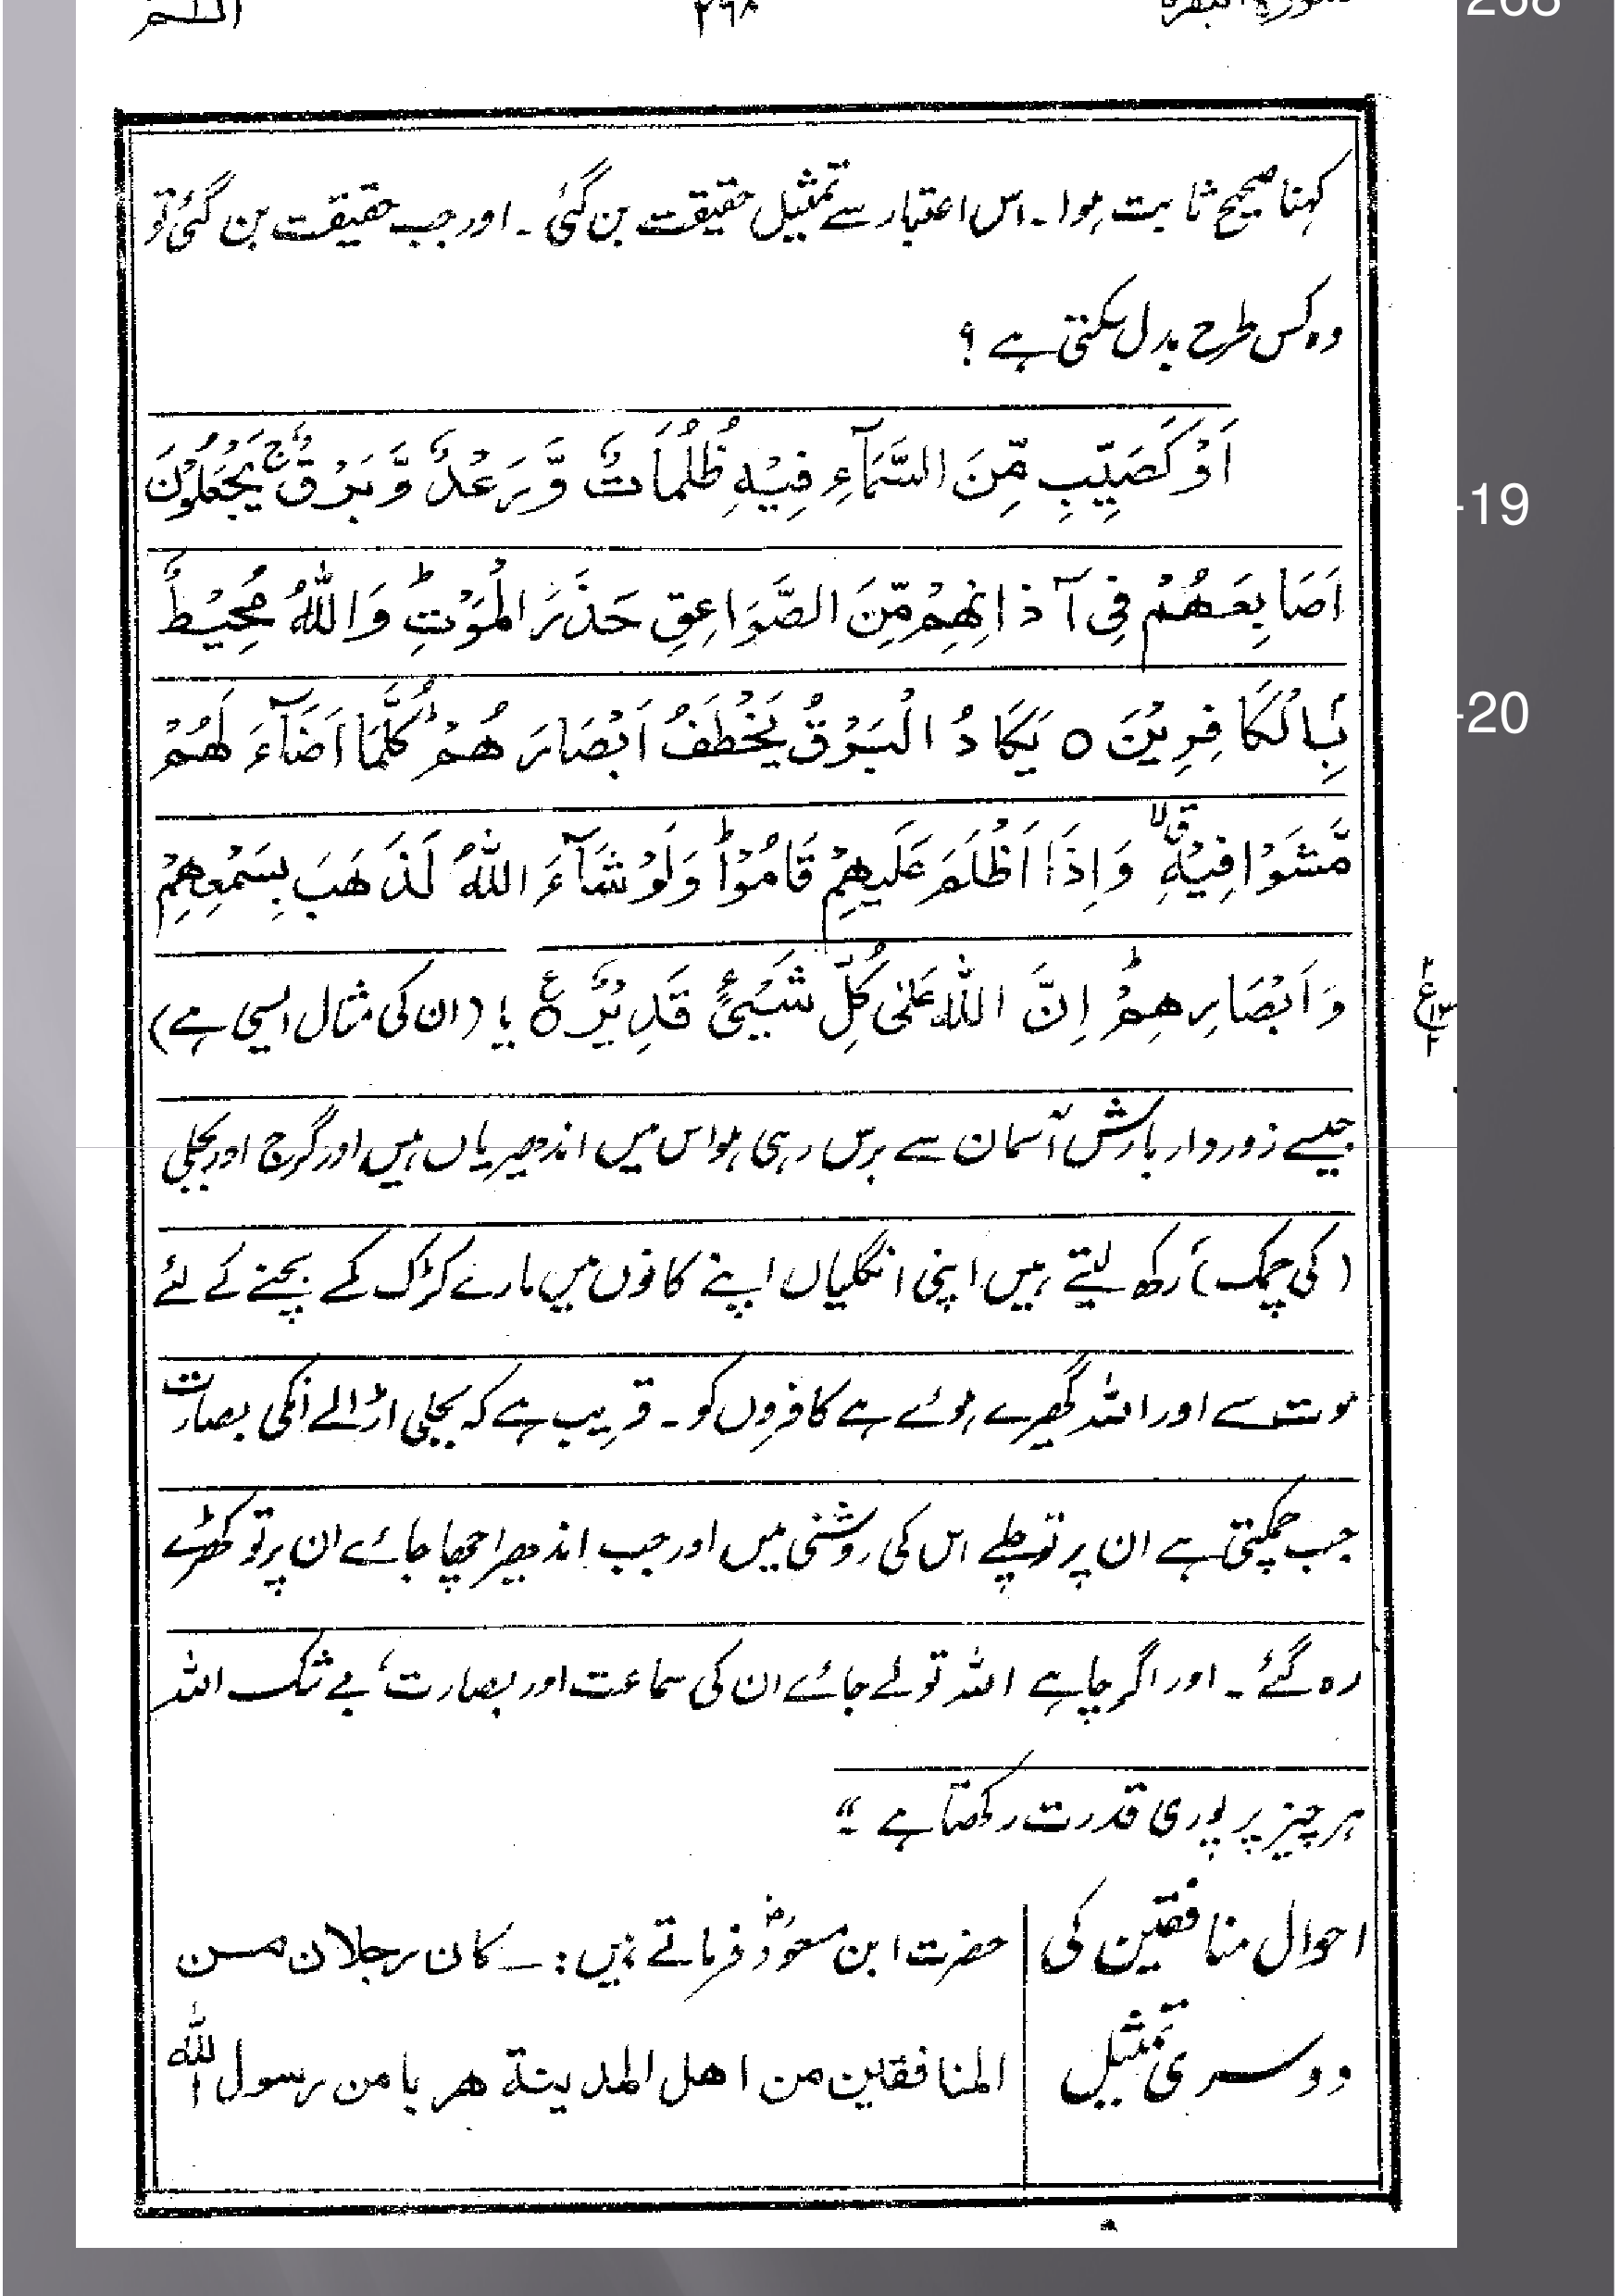 سورۃ البقرۃ ۲۶۸ الٓـمّٓ
268
کہنا صحیح ثابت ہوا۔ اس اعتبار سے تمثیل حقیقت بن گئی۔ اور جب حقیقت بن گئی تو
وہ کس طرح بدل سکتی ہے ؟
اَوْ كَصَيِّبٍ مِّنَ السَّمَآءِ فِيْهِ ظُلُمَاتٌ وَّرَعْدٌ وَّبَرْقٌ ۚ يَجْعَلُوْنَ
-19
اَصَابِعَهُمْ فِى آذَانِهِمْ مِّنَ الصَّوَاعِقِ حَذَرَ الْمَوْتِ ؕ وَاللهُ مُحِيْطٌ
بِالْكَافِرِيْنَ ○ يَكَادُ الْبَرْقُ يَخْطَفُ اَبْصَارَهُمْ ؕ كُلَّمَا اَضَآءَ لَهُمْ
-20
مَّشَوْا فِيْهِ ۙۗ وَاِذَا اَظْلَمَ عَلَيهِمْ قَامُوْا ؕ وَلَوْ شَآءَ اللهُ لَذَهَبَ بِسَمْعِهِمْ
وَاَبْصَارِهِمْ ؕ اِنَّ اللهَ عَلٰى كُلِّ شَيْئٍ قَدِيْرٌ ○ ع یا (ان کی مثال ایسی ہے)
جیسے زوردار بارش آسمان سے برس رہی ہو اس میں اندھیریاں ہیں اور گرج اور بجلی
(کی چمک) رکھ لیتے ہیں اپنی انگلیاں اپنے کانوں میں مارے کڑک کے بچنے کے لئے
موت سے اور اللہ گھیرے ہوئے ہے کافروں کو۔ قریب ہے کہ بجلی اڑالے انکی بصارت
جب چمکتی ہے ان پر تو چلے اس کی روشنی میں اور جب اندھیرا چھا جائے ان پر تو کھڑے
رہ گئے۔ اور اگر چاہے اللہ تو لے جائے ان کی سماعت اور بصارت، بے شک اللہ
ہر چیز پر پوری قدرت رکھتا ہے ۔"
احوال منافقین کی
دوسری تمثیل
حضرت ابن مسعودؓ فرماتے ہیں :۔ کان رجلان من
المنافقین من اھل المدینۃ ھربا من رسول اللہ